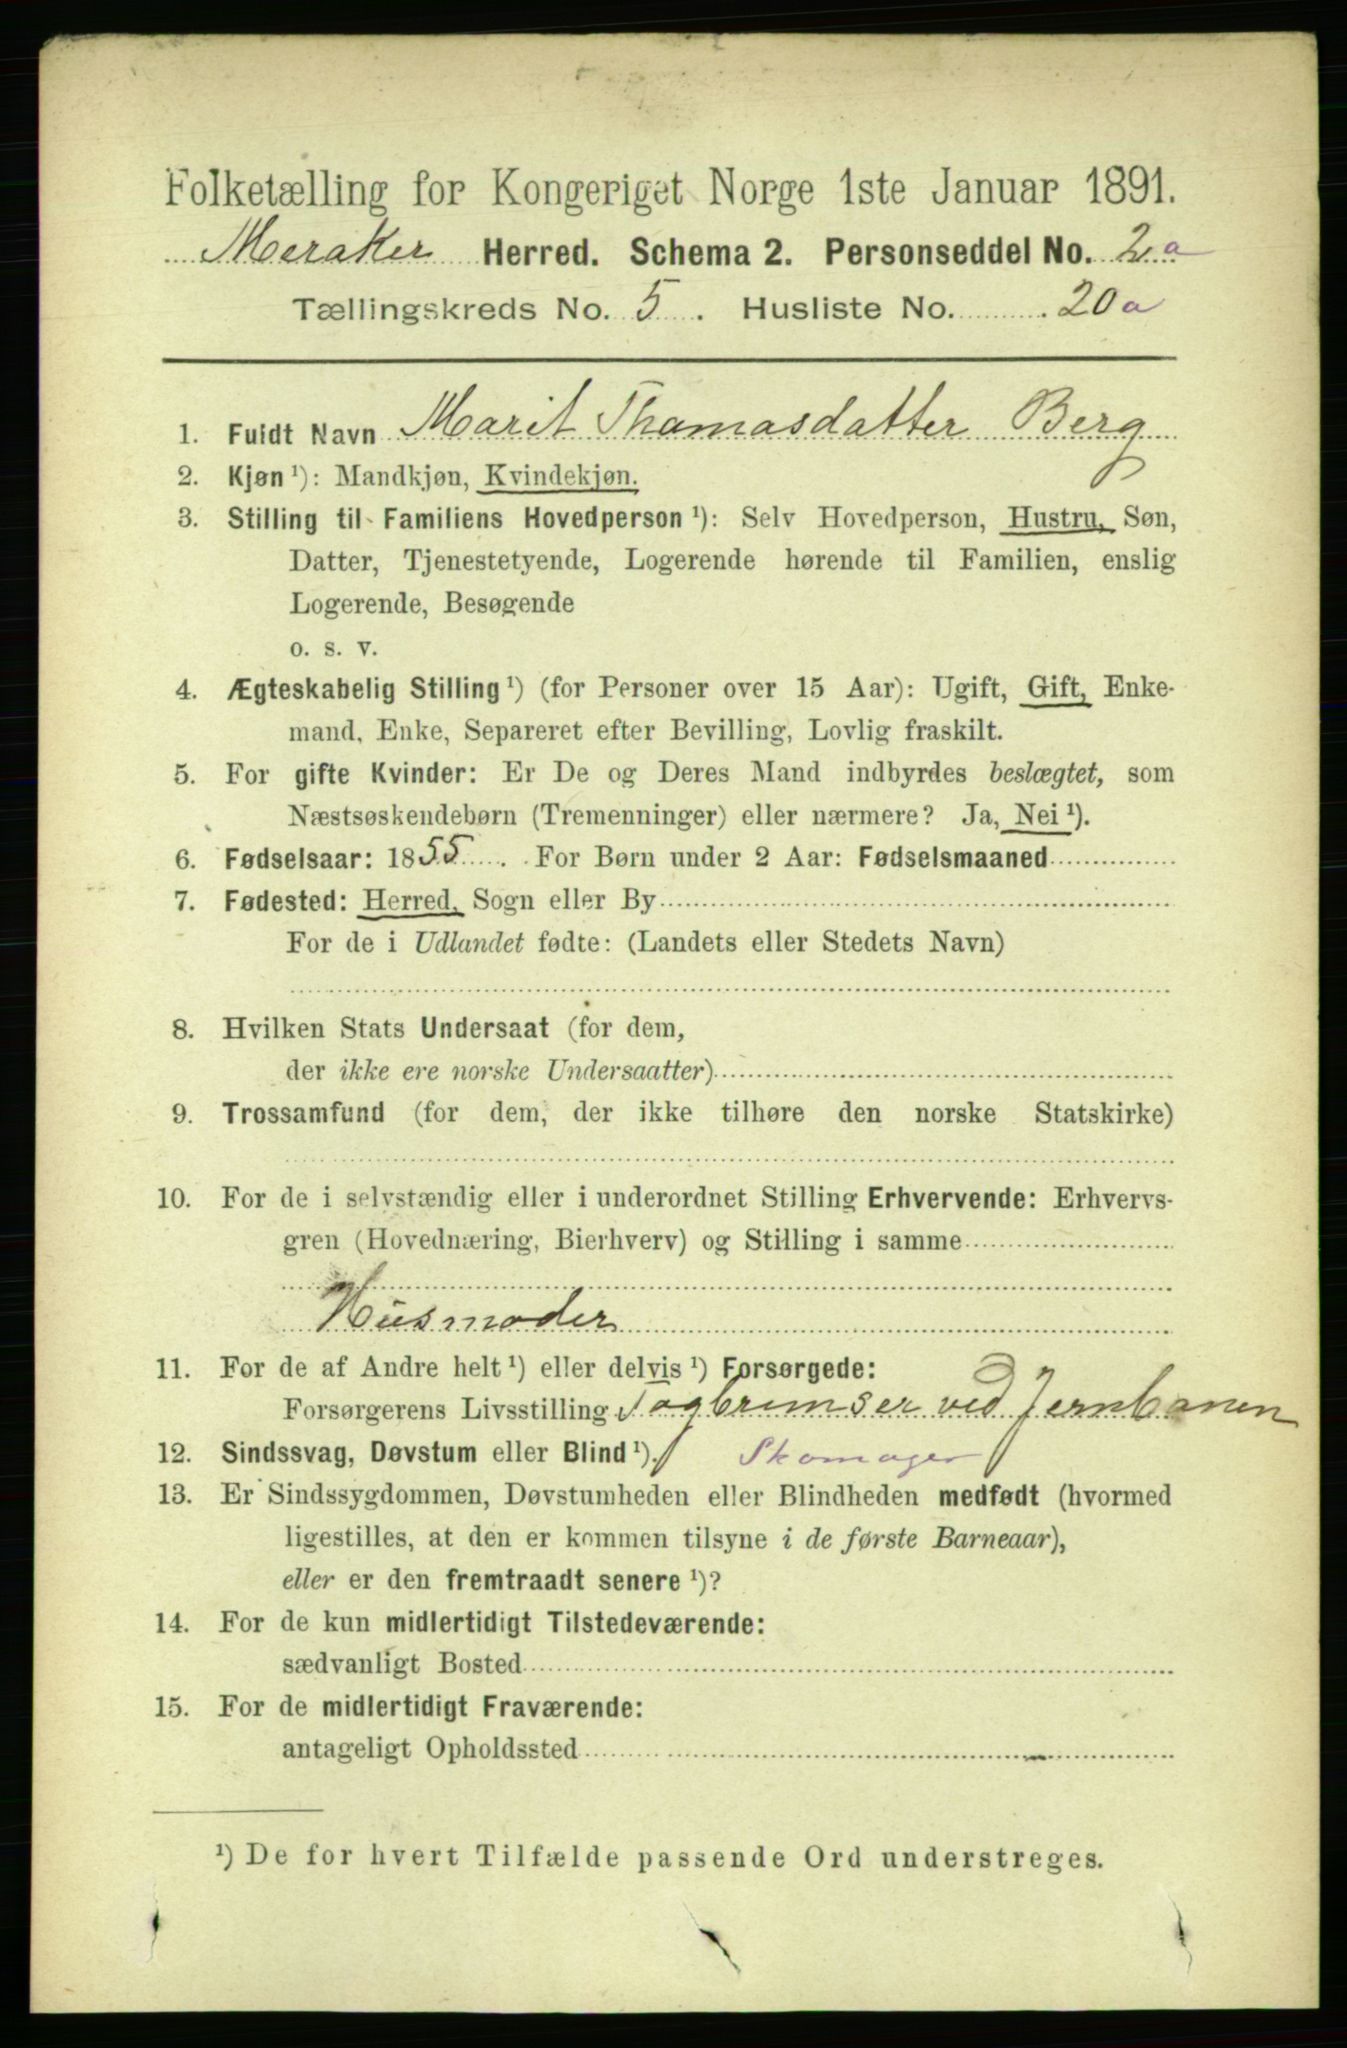 Folketælling for Kongeriget Norge 1ste Januar 1891.
Meraker Herred. Schema 2. Personseddel No. 2 a
Tællingskreds No. 5. Husliste No. 20 a
1. Fuldt Navn Marit Thomasdatter Berg
2. Kjøn ¹): Mandkjøn, Kvindekjøn.
3. Stilling til Familiens Hovedperson ¹): Selv Hovedperson, Hustru, Søn,
Datter, Tjenestetyende, Logerende hørende til Familien, enslig
Logerende, Besøgende
o. s. v.
4. Ægteskabelig Stilling ¹) (for Personer over 15 Aar): Ugift, Gift, Enke-
mand, Enke, Separeret efter Bevilling, Lovlig fraskilt.
5. For gifte Kvinder: Er De og Deres Mand indbyrdes beslægtet, som
Næstsøskendebørn (Tremenninger) eller nærmere? Ja, Nei ¹).
6. Fødselsaar: 1855. For Børn under 2 Aar: Fødselsmaaned
7. Fødested: Herred, Sogn eller By
For de i Udlandet fødte: (Landets eller Stedets Navn)
8. Hvilken Stats Undersaat (for dem,
der ikke ere norske Undersaatter)
9. Trossamfund (for dem, der ikke tilhøre den norske Statskirke)
10. For de i selvstændig eller i underordnet Stilling Erhvervende: Erhvervs-
gren (Hovednæring, Bierhverv) og Stilling i samme
Husmoder
11. For de af Andre helt ¹) eller delvis ¹) Forsørgede:
Forsørgerens Livsstilling Togbremser ved Jernbanen
12. Sindssvag, Døvstum eller Blind ¹). Skomager
13. Er Sindssygdommen, Døvstumheden eller Blindheden medfødt (hvormed
ligestilles, at den er kommen tilsyne i de første Barneaar),
eller er den fremtraadt senere ¹)?
14. For de kun midlertidigt Tilstedeværende:
sædvanligt Bosted
15. For de midlertidigt Fraværende:
antageligt Opholdssted
¹) De for hvert Tilfælde passende Ord understreges.